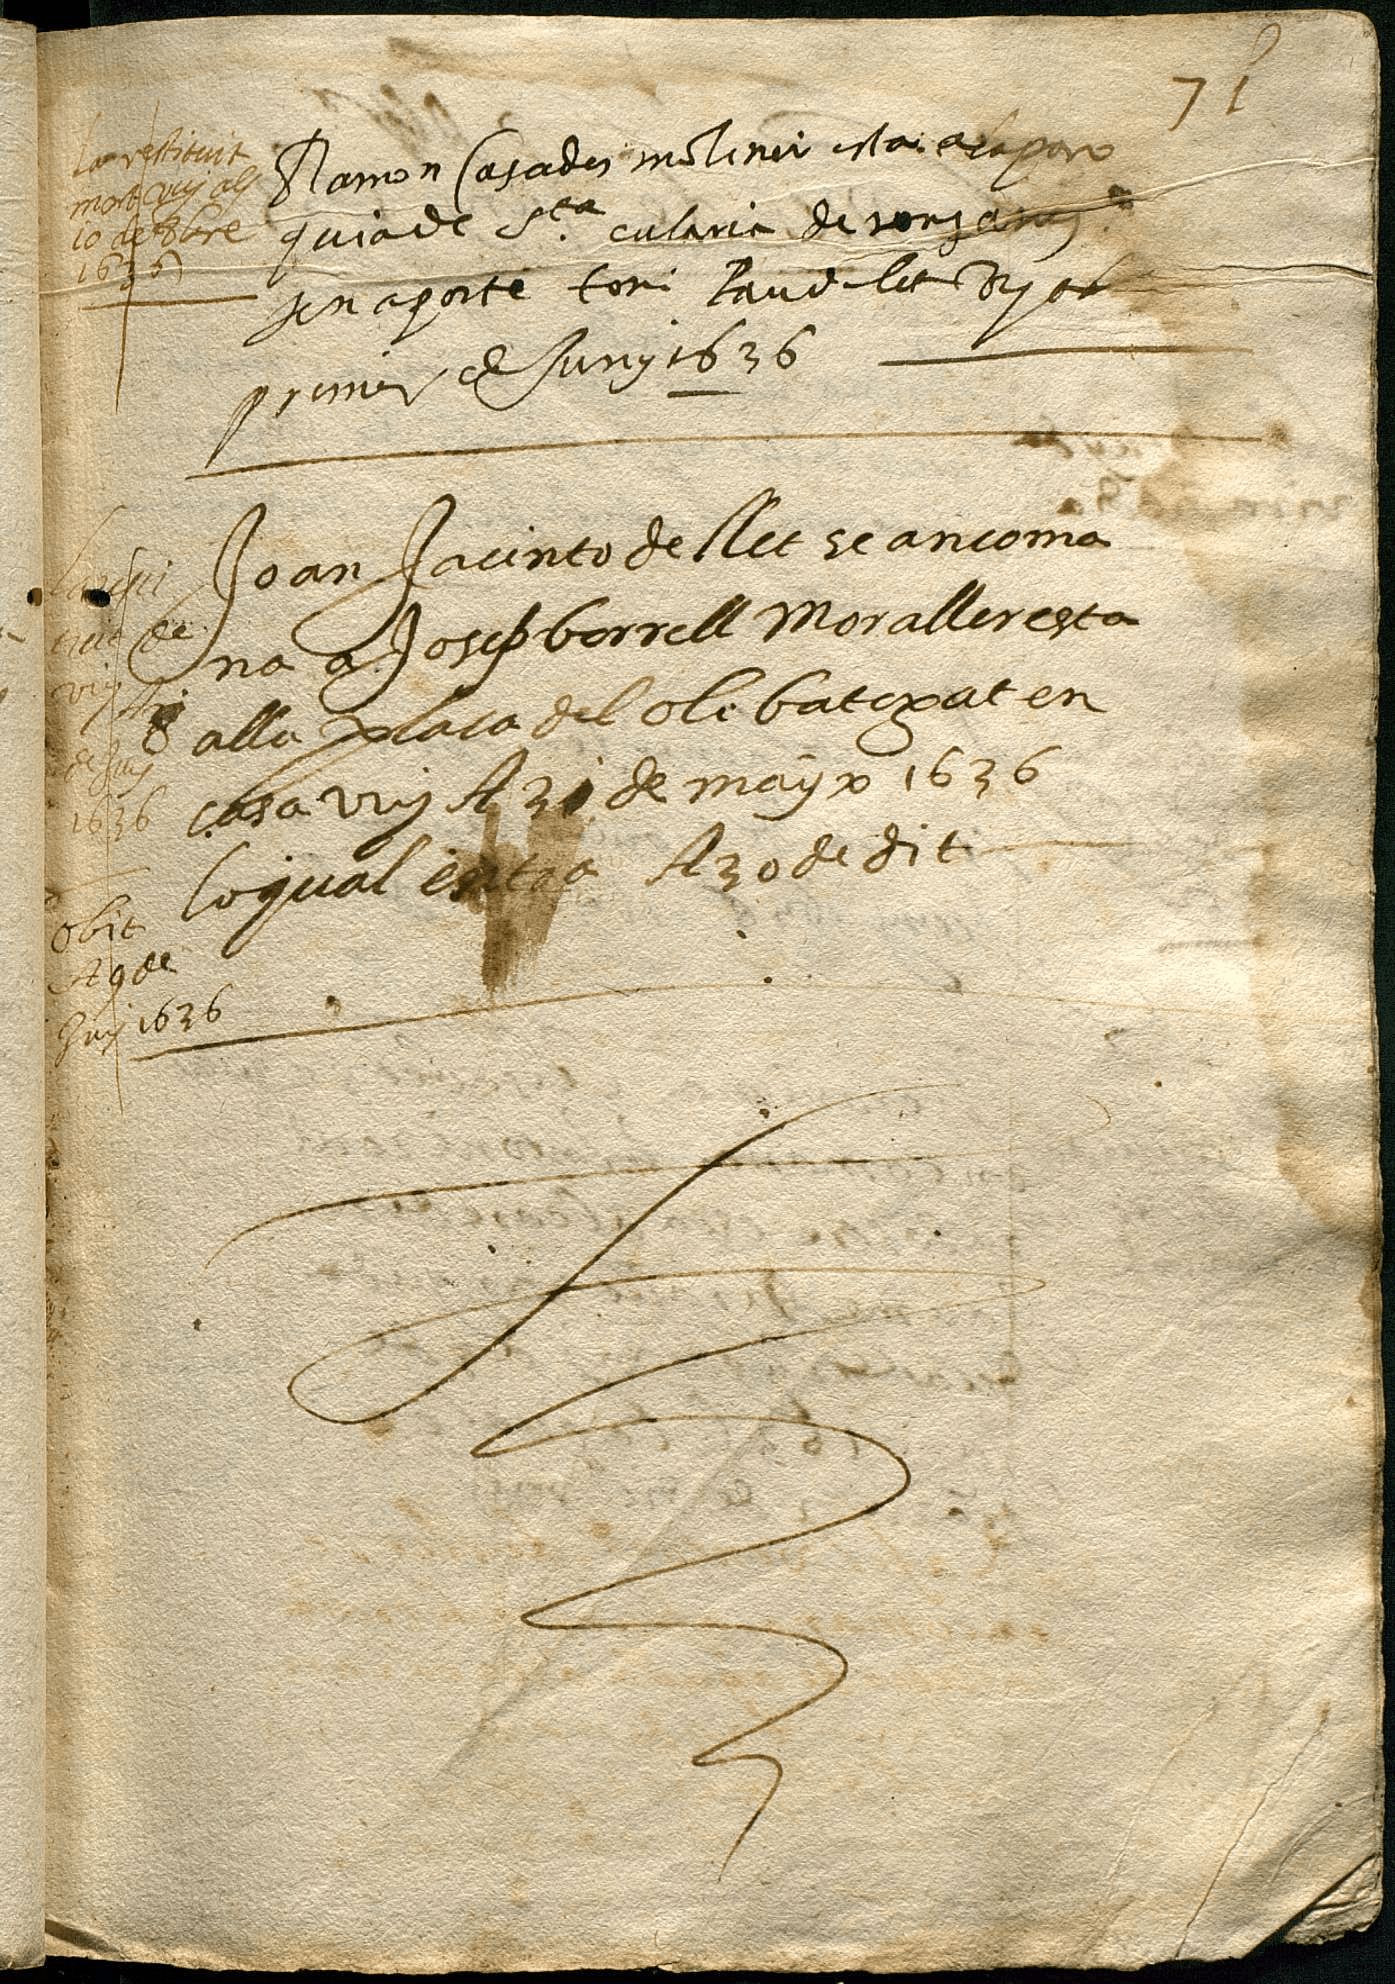 71
la restituit
mort vuy als
10 de 8bre
1636
Ramon Casades moliner esta a la paro
quia de Sta cularia de
sen aporte toni Paud llet vuy als
primer de Juny 1636
de
vuy
8
de Juny
1636
Joan Jacinto de llet se ancoma
na a Josep borrell Moraller esta
alla plasa del oli batexat en
casa vuy A 31 de mayx 1636
lo qual entra A 30 de dit
obit
A 9 de
Juny 1636